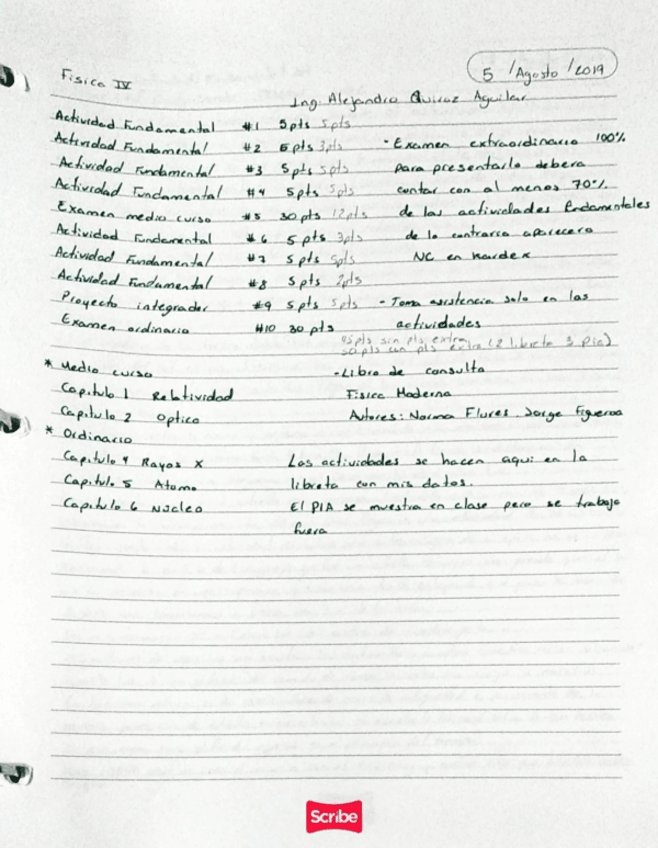 Fisica IV
5 /Agosto /2019
Ing. Alejandro Quiroz Aguilar
Actividad Fundamental #1 5pts 5pts
Actividad Fundamental #2 5pts 3pts
Actividad Fundamental #3 5pts 5pts
Actividad Fundamental #4 5pts 5pts
Examen medio curso #5 30pts 12pts
Actividad Fundamental #6 5pts 3pts
Actividad Fundamental #7 5pts 5pts
Actividad Fundamental #8 5pts 2pts
Proyecto integrador #9 5pts 5pts
Examen ordinario #10 30pts
- Examen extraordinario 100%
para presentarlo debera
contar con al menos 70%
de las actividades
de lo contrario aparecera
NC en kardex
- Toma asistencia solo en las
actividades
45pts sin pts extra
50pts con pts extra (2 libreta 3 Pia)
* Medio curso
Capitulo 1 Relatividad
Capitulo 2 Optica
* Ordinario
Capitulo 4 Rayos X
Capitulo 5 Atomo
Capitulo 6 Nucleo
- Libro de consulta
Fisica Moderna
Autores: Norma Flores Jorge Figueroa
Las actividades se hacen aqui en la
libreta con mis datos.
El PIA se muestra en clase pero se trabaja
fuera
Scribe